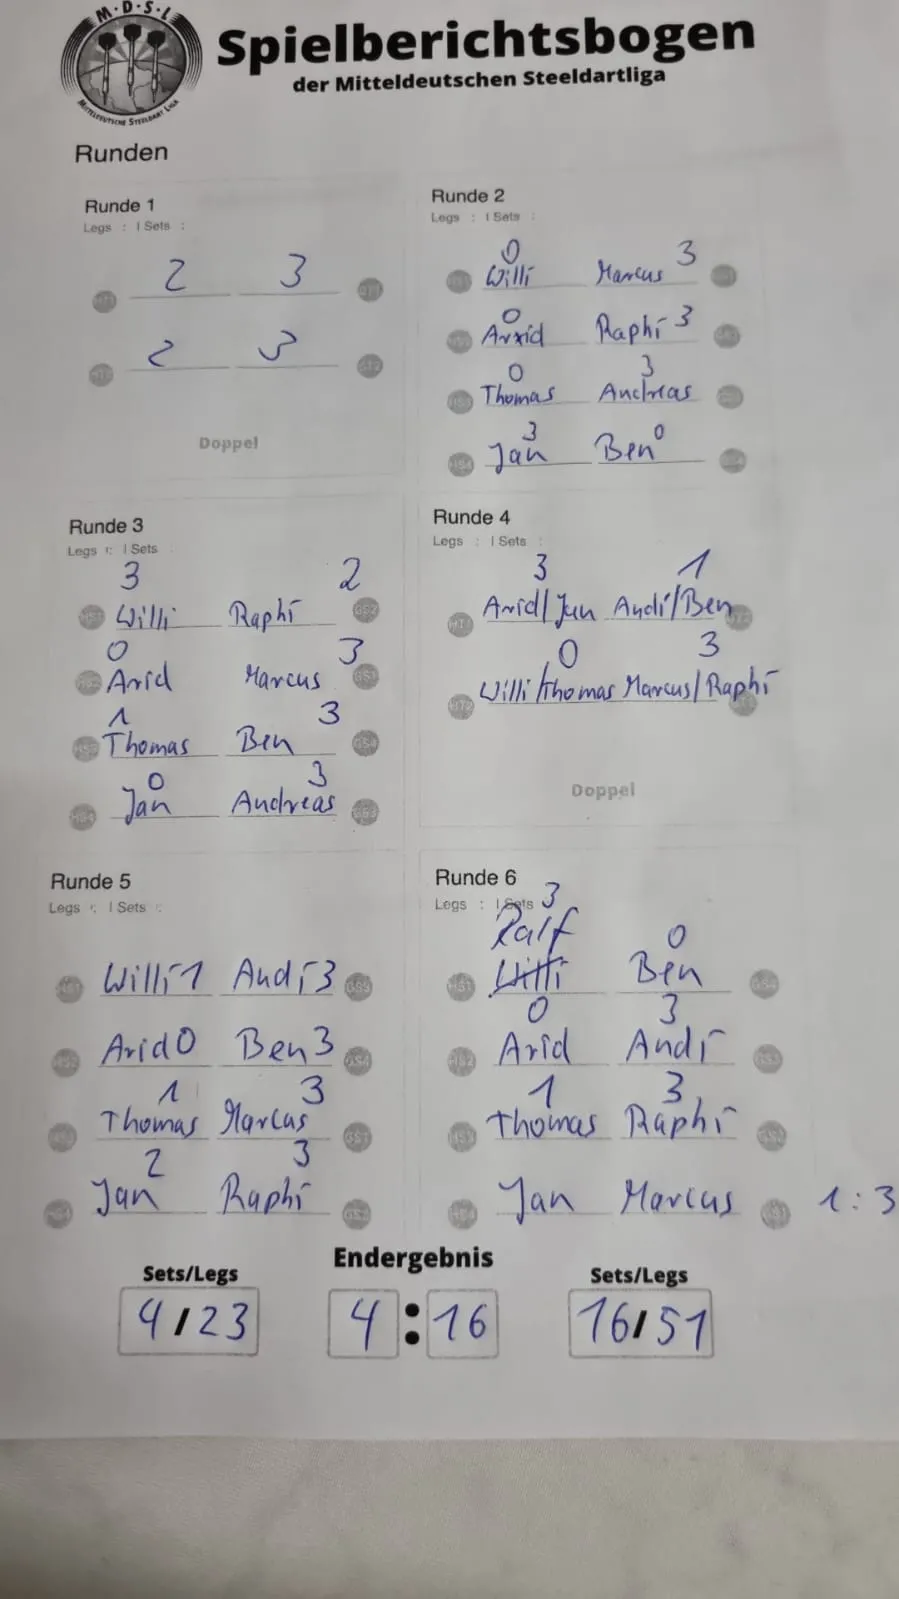 M·D·S·L
MITTELDEUTSCHE STEELDART LIGA
Spielberichtsbogen
der Mitteldeutschen Steeldartliga
Runden
Runde 1
Legs : | Sets :
2 3
2 3
Doppel
Runde 2
Legs : | Sets :
0 3
Willi Marcus
0 3
Arvid Raphi
0 3
Thomas Andreas
3 0
Jan Ben
Runde 3
Legs : | Sets :
3 2
Willi Raphi
GS2
0 3
Arvid Marcus
GS1
1 3
Thomas Ben
GS4
0 3
HS4 Jan Andreas GS3
Runde 4
Legs : | Sets :
3 1
HT1 Arvid/Jan Andi/Ben
0 3
HT2 Willi/Thomas Marcus/Raphi
Doppel
Runde 5
Legs : | Sets :
HS1 Willi 1 Andi 3 GS3
HS2 Arvid 0 Ben 3 GS4
1 3
Thomas Marcus GS1
2 3
Jan Raphi
Runde 6
Legs : | Sets :
3
Ralf 0
HS1 Willi Ben GS4
0 3
HS2 Arvid Andi
1 3
HS3 Thomas Raphi GS2
HS4 Jan Marcus GS1 1:3
Endergebnis
Sets/Legs Sets/Legs
4/23 4:16 16/51